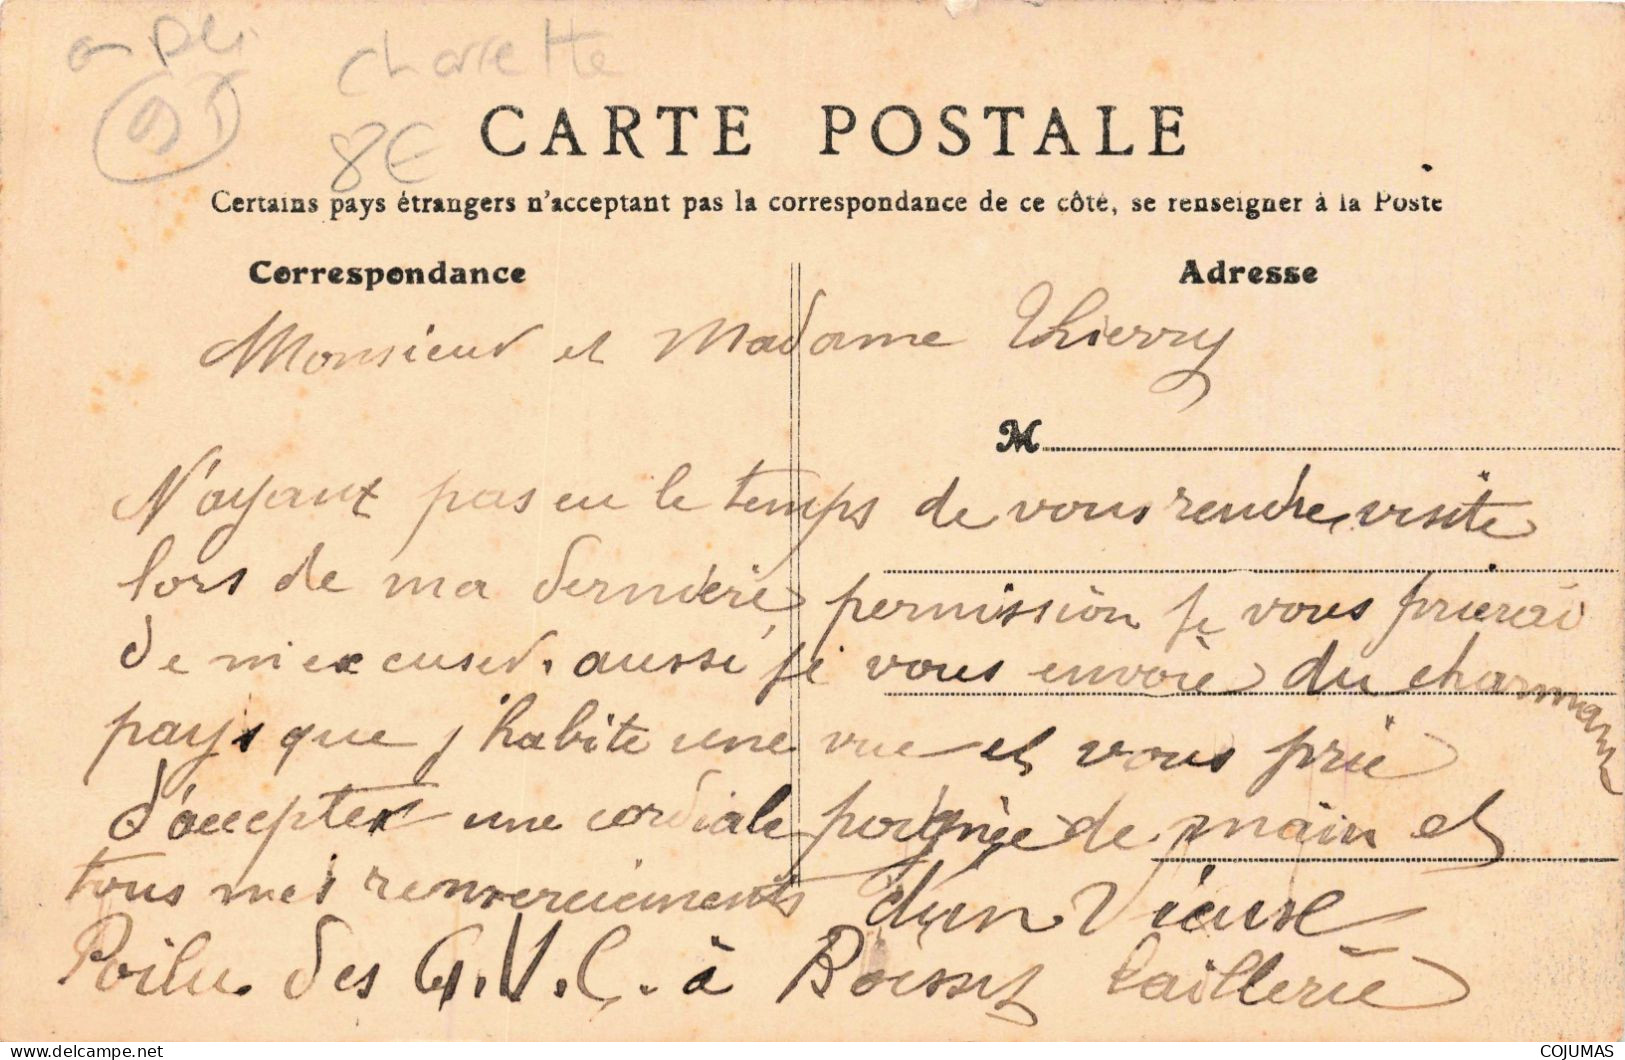 charrette
8€
CARTE POSTALE
Certains pays étrangers n'acceptant pas la correspondance de ce côté, se renseigner à la Poste
Correspondance
Adresse
Monsieur et Madame Thierry
M
N'ayant pas eu le temps de vous rendre visite
lors de ma dernière permission je vous prierai
de m'excuser. aussi je vous envoie du charmant
pays que j'habite une vue et vous prie
d'accepter une cordiale poignée de main et
tous mes remerciements d'un Vieux
Poilu des G.V.C. à Boissy taillerie
COJUMAS